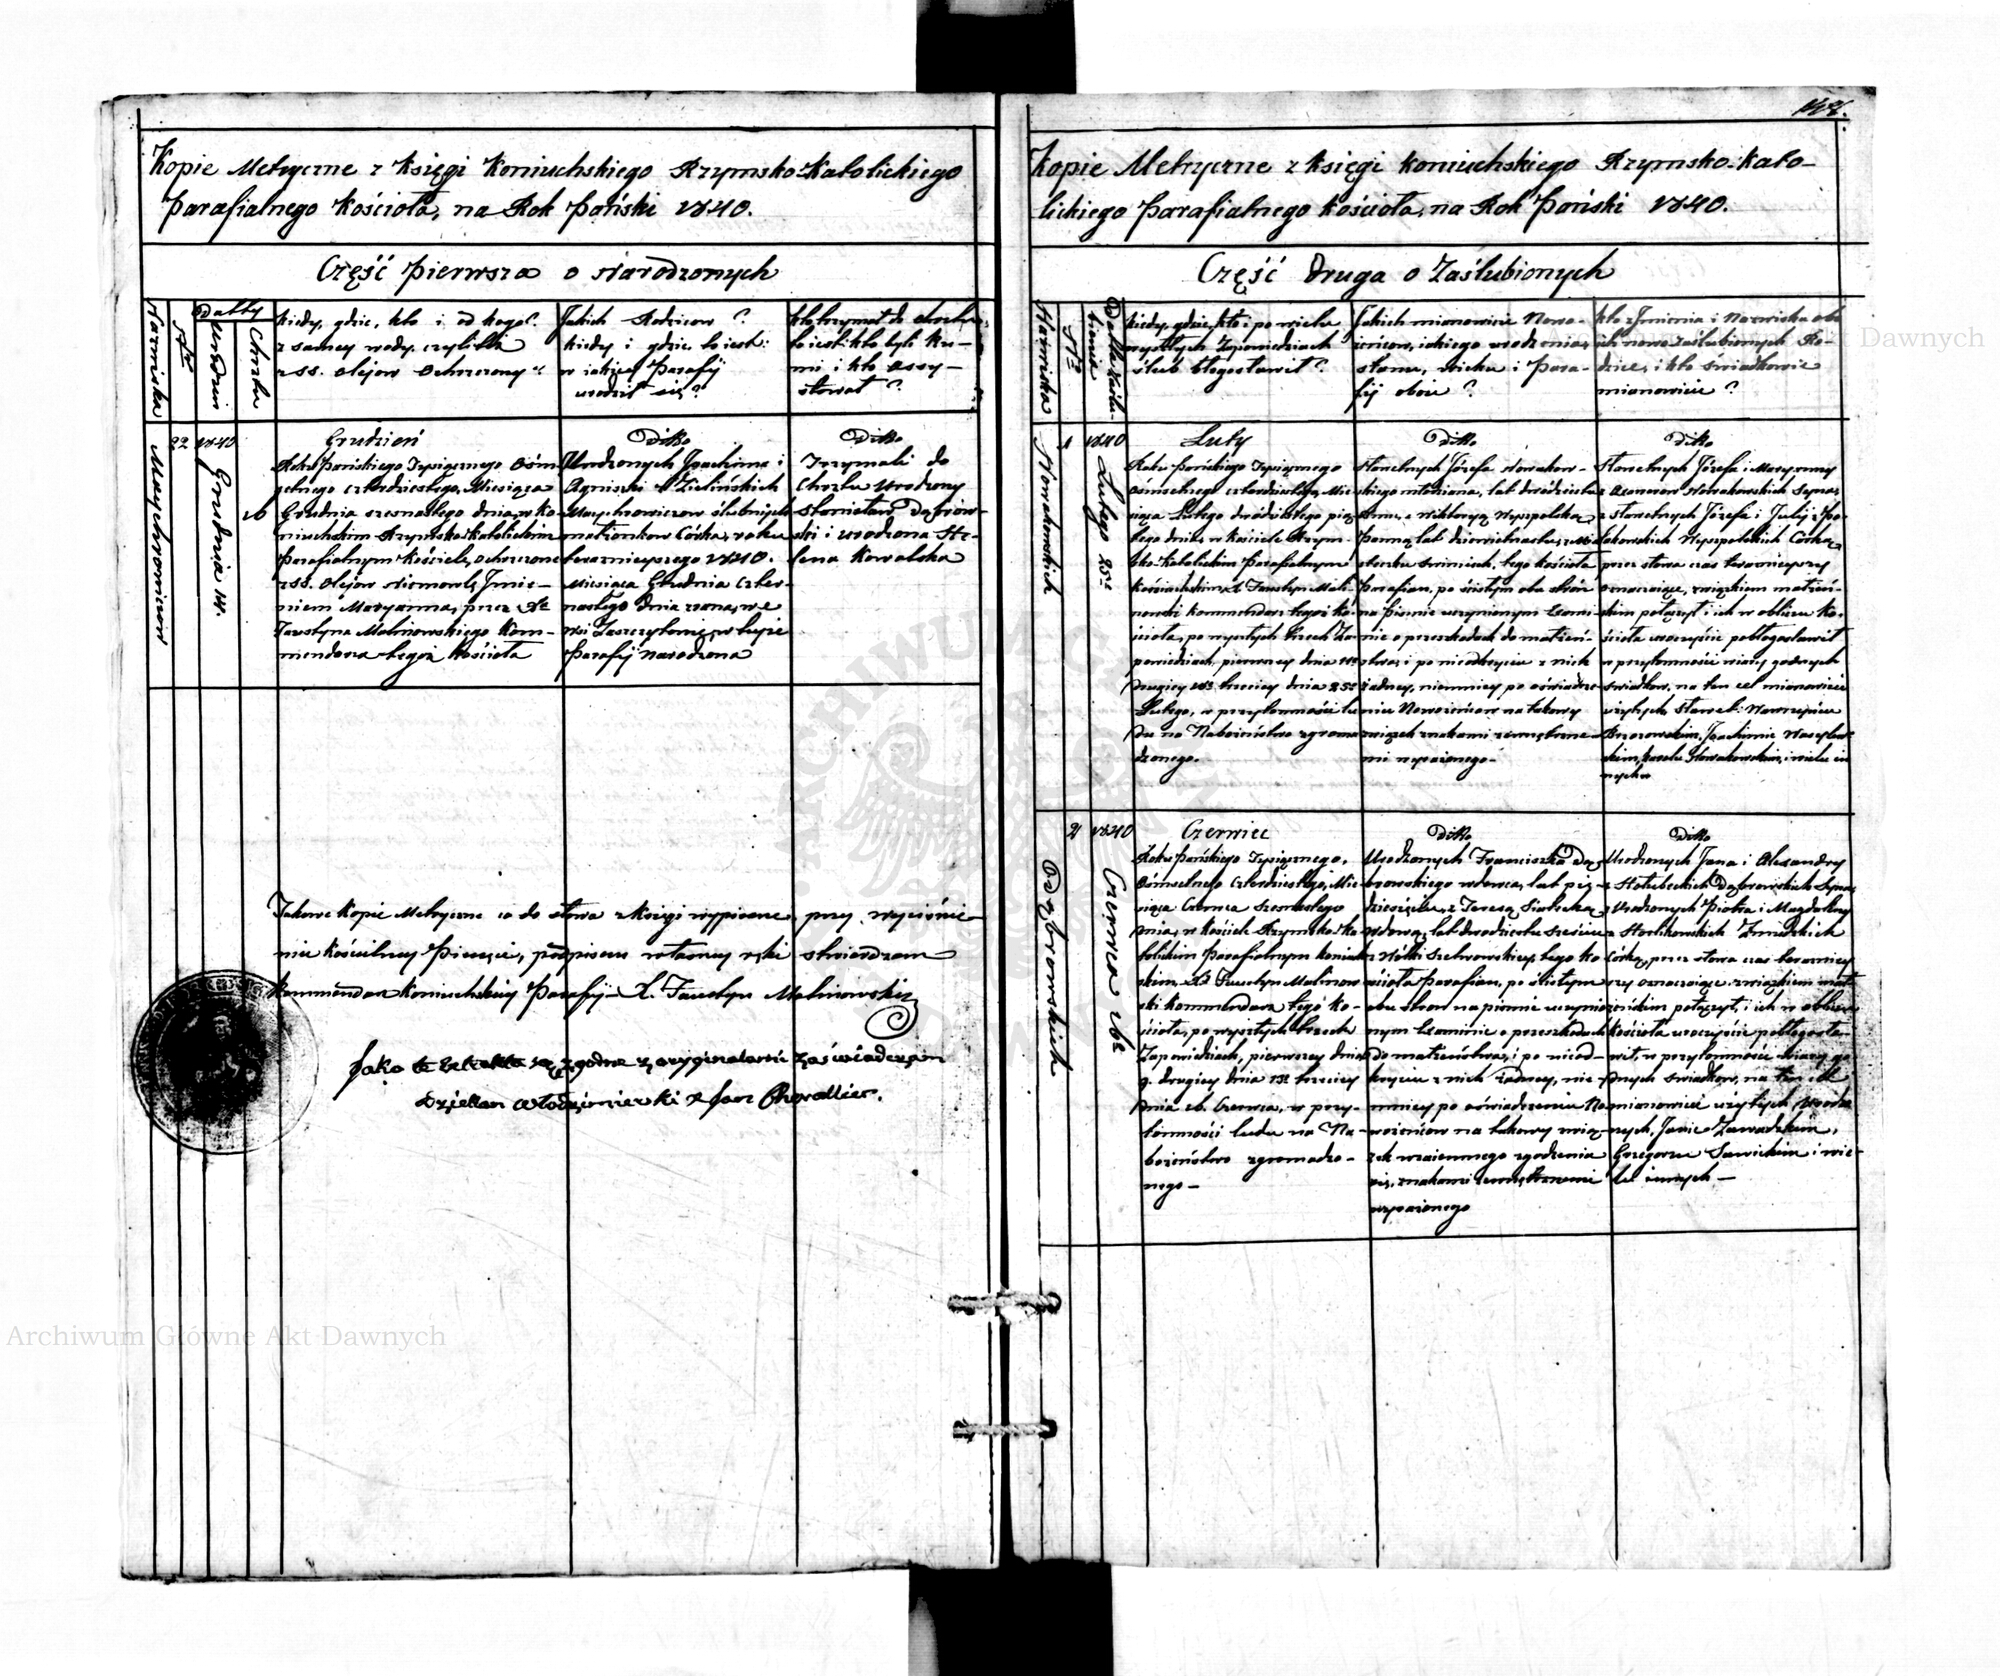 Kopie Metryczne z Księgi Koniuchskiego Rzymsko-Katolickiego
Parafialnego Kościoła, na Rok Pański 1840.
Część Pierwsza o Narodzonych
Nazwiska
Nro
Datty
Urodzin
Chrztu
Kiedy, gdzie, kto i od kogo?
z samey wody czyli też
z SS. Olejow Ochrzczony?
Jakich Rodzicow?
Kiedy i gdzie to iest:
w iakiey Parafij
urodził się?
Kto trzymał do chrztu,
to iest: kto byli Ku-
mi i kto assy-
stował?
Marychrowiczow
22
1840
Grudnia 14.
16
Grudzień
Roku Pańskiego Tysiącznego Ośm-
setnego czterdziestego, Miesiąca
Grudnia szesnastego dnia, w Ko-
niuchskim Rzymsko-Katolickim
Parafialnym Kościele, ochrzczone
z SS. Olejow Niemowlę, Imie-
niem Maryanna, przez Xa
Faustyna Malinowskiego Kom-
mendarza tegoż Kościoła
Ditto
Urodzonych Joachima i
Agnieszki z Zielińskich
Marychrowiczow ślubnych
małżonkow Córka, roku
teraznieyszego 1840.
Miesiąca Grudnia czter-
nastego dnia zrana, we
Wsi Jaszczyłowię, w tuyże
Parafij narodzona
Ditto
Trzymali do
Chrztu Urodzony
Stanisław Dąbrow-
ski i urodzona He-
lena Kowalska
Takowe Kopie Metryczne co do słowa z Księgi wypisane, przy wyciśnie-
niu Kościelney Pieczęci, podpisem własney ręki stwierdzam
Kommendarz Koniuchskiey Parafij X. Faustyn Malinowski
Jako te Extrakta są zgodne z oryginałami zaświadczam
Dziekan Włodzimierski X Jan Chevallier.
Kopie Metryczne z Księgi Koniuchskiego Rzymsko-Kato-
lickiego Parafialnego Kościoła, na Rok Pański 1840.
Część Druga o Zaślubionych
Nazwiska
Nro
Datta Zaślu-
bienia
Kiedy, gdzie, kto i po wielu
wyszłych Zapowiedziach
ślub błogosławił?
Jakich mianowicie Nowo-
żeńcow, iakiego urodzenia,
stanu, wieku i Para-
fij oboie?
Kto z Imienia i Nazwiska obo-
ich nowo zaślubionych Ro-
dzice, i kto świadkowie
mianowicie?
Nowakowskich
1
1840
Lutego 25o
Luty
Roku Pańskiego Tysiącznego
Ośmsetnego czterdziestego, Mie-
siąca Lutego dwódziestego pią-
tego dnia, w Kościele Rzym-
sko-Katolickim Parafialnym
X. Faustyn Mali-
nowski Kommendarz tegoż Ko-
ścioła, po wyszłych trzech Za-
powiedziach, pierwszey dnia
drugiey trzeciey dnia 25o
Lutego, w przytomności lu-
du na Nabożeństwo zgroma-
dzonego.
Ditto
Sławetnych Józefa Nowakow-
skiego młodziana, lat dwódziestu
z Wiktoryą Wyspolską
Panną, lat dziewiętnastu,
tego Kościoła
Parafian, po ścisłym obu stron
na Piśmie uczynionym Exami-
nie o przeszkodach do małżeń-
stwa, i po nieodkryciu z nich
żadney, niemniey po oświadcze-
niu Nowożeńcow na takowy
związek znakami zewnętrzne-
mi wyrażonego-
Ditto
Sławetnych Józefa i Maryanny
Nowakowskich Syna,
z Sławetnych Józefa i Julij z
Wyspolskich Córkę,
przez słowa czas teraznieyszy
oznaczaiące, związkiem małżeń-
skim połączył i ich w obliczu Ko-
ścioła uroczyście pobłogosławił
w przytomności wiary godnych
świadkow, na ten cel mianowicie
użytych, Sławet: Wawrzyńcu
Brzozowskim, Joachimie
Nowakowskim, i wielu in-
nych
Dąbrowskich
2
1840
Czerwca 16o
Czerwiec
Roku Pańskiego Tysiącznego,
Ośmsetnego Czterdziestego, Mie-
siąca Czerwca Szesnastego
Dnia, w Kościele Rzymsko-Ka-
tolickim Parafialnym Koniuch-
skim, X. Faustyn Malinow-
ski Kommendarz tegoż Ko-
ścioła, po wyszłych trzech
Zapowiedziach, pierwszey dnia
9. drugiey dnia trzeciey
dnia 16. Czerwca, w przy-
tomności ludu na Na-
bożeństwo zgromadzo-
nego-
Ditto
Urodzonych Franciszka Dą-
browskiego wdowca, lat pię-
dziesięciu, z Teresą
Wdową, lat dwadzieścia sześciu
z Wólki Szelwowskiey, tego Ko-
ścioła Parafian, po ścisłym
obu stron na piśmie uczynio-
nym Examinie o przeszkodach
do małżeństwa, i po nieod-
kryciu z nich żadney, nie-
mniey po oświadczeniu No-
wożeńcow na takowy zwią-
zek wzaiemnego zgodzenia
się, znakami zewnętrznemi
wyrażonego
Ditto
Urodzonych Jana i Alexandry
Dąbrowskich Syna,
z Urodzonych Piotra i Magdaleny
Żmudzkich
Córką, przez słowa czas terazniey-
szy oznaczaiące związkiem mał-
żeńskim połączył, i ich w obliczu
Kościoła uroczyście pobłogosła-
wił, w przytomności wiary go-
dnych świadkow, na ten cel
mianowicie użytych, Urodzo-
nych, Janie Zawadzkim,
Grzegorzu Sawickim i wie-
lu innych-
Archiwum Główne Akt Dawnych
Akt Dawnych